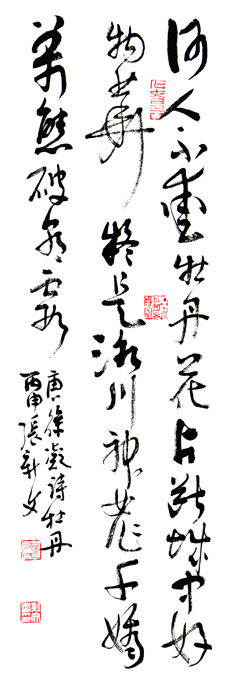 何人不爱牡丹花占断城中好
物华疑是洛川神女千娇
万态破朝霞
唐徐凝诗牡丹
丙申张新文